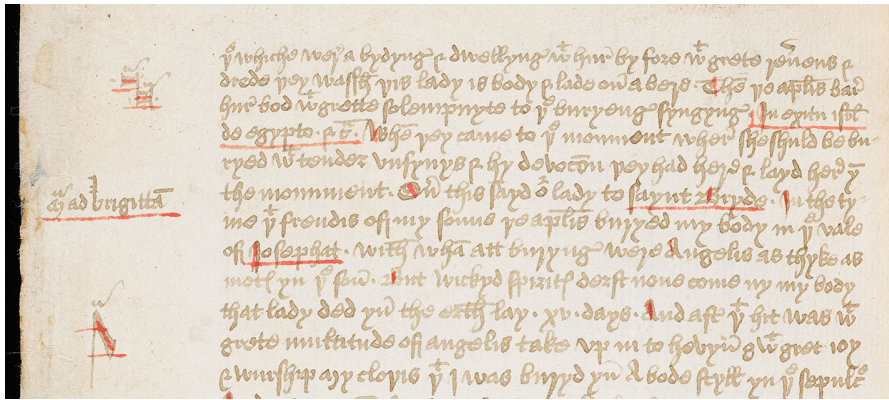 yͤ whiche wer a bydyng & dwellyng wᵗ hur by fore wᵗ grete reuens &
drede yey wassħ yis lady is body & lade on a bere. Thē ye aplis bar
hur bod wᵗ grette solempnyte to yͤ buryeng syngyng In exitu isrl
de egypto. &c. Whē yey came to yͤ monment wher she shuld be bu-
ryed wᵗ tender vnsynys & hy deuocōn yey had herd & layd her yn
the monument. On this sayd oͬ lady to saynt Bryde. In the ty-
me yᵗ frendis off my sonne ye aplis buryed my body in yͤ vale
off Josephat. with whā att buryng were Angelis as thyke as
motis yn yͤ sonn. But wickyd spiritis derst none come ny my body
that lady ded yn the erth lay. xv. days. And aft yᵗ hit was wᵗ
grete multitude off angelis take vp in to hevyn wᵗ gret ioy
& wurship my clothis yᵗ I was buryd yn A bode styll yn yͤ sepulcͬ
Mᵃ ad brigittā